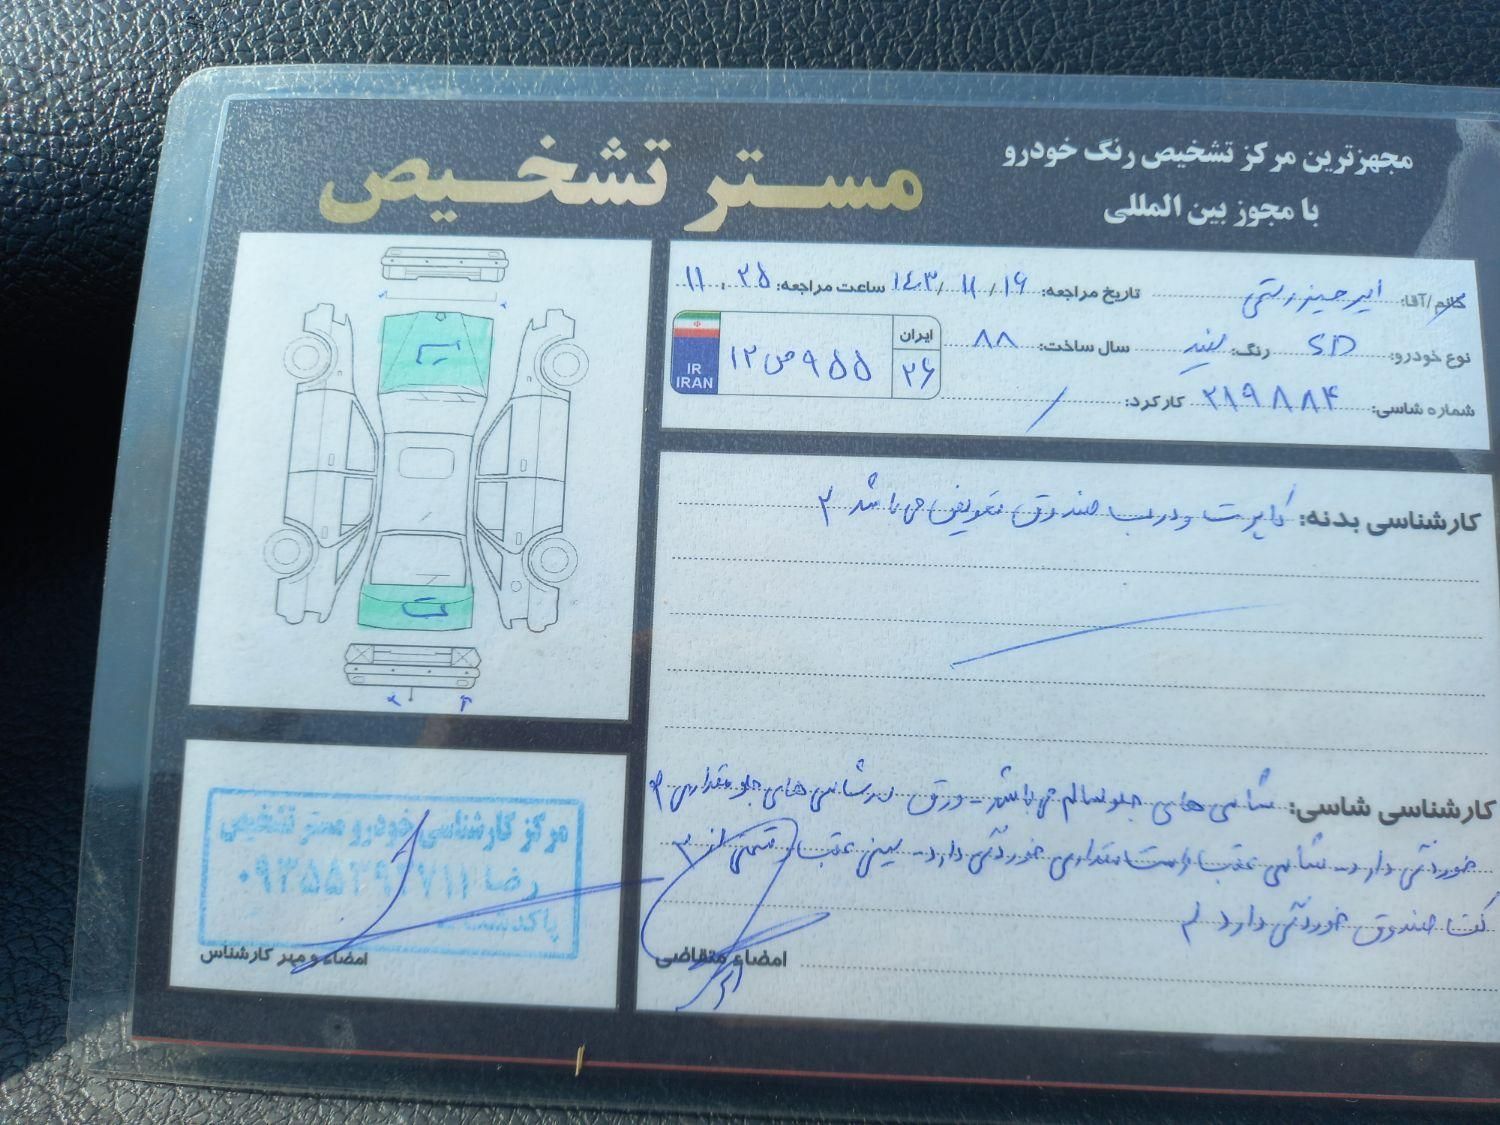 مستر تشخیص
مجهزترین مرکز تشخیص رنگ خودرو
با مجوز بین المللی
خانم/آقا: امیر حسین رستمی تاریخ مراجعه: ۱۴۰۳/۱۱/۱۶ ساعت مراجعه: ۱۱:۳۵
نوع خودرو: SD رنگ: سفید سال ساخت: ۸۸
ایران ۳۶ ۹۵۵ ص ۱۲ IR IRAN
شماره شاسی: ۲۱۹۸۸۴ کارکرد: /
کارشناسی بدنه: کاپوت و درب صندوق تعویض می باشد
کارشناسی شاسی: شاسی های جلو سالم می باشد - ورق سرشاسی های جلو مقداری
خوردگی دارد - شاسی عقب راست مقداری خوردگی دارد - سینی عقب و قسمتی از
کف صندوق خوردگی دارد
امضاء متقاضی
مرکز کارشناسی خودرو مستر تشخیص
رضا
پاکدشت
امضاء و مهر کارشناس